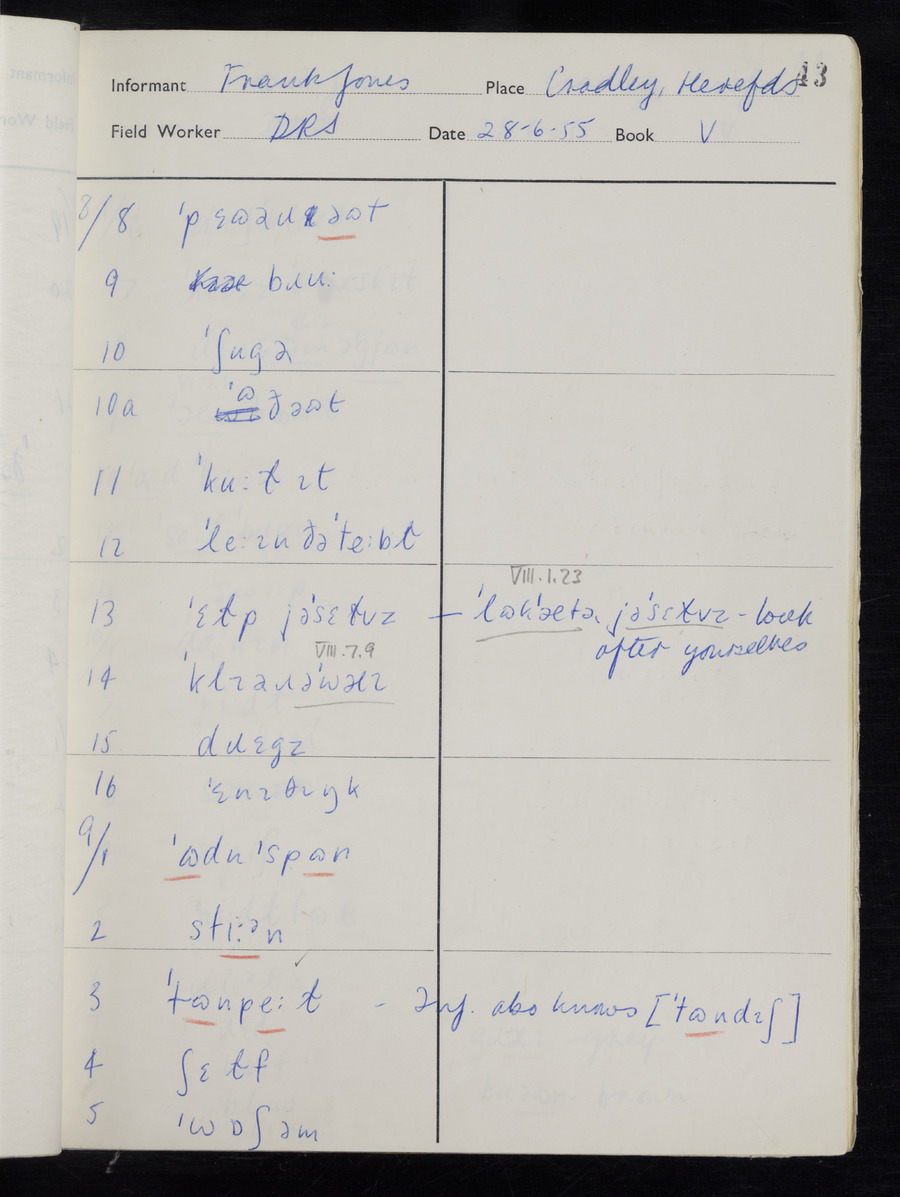 43
Informant Frank Jones Place Cradley, Herefds
Field Worker DRS Date 28-6-55 Book V
8/8 ˈpɛɷəɹɪəɷt
9 bɹuː
10 ˈʃugə
10a ˈɷðəɷt
11 ˈkuːɫɪt
12 ˈleːɪn ðəˈteːbɫ
VIII.1.23
13 ˈɛɫp jəˈsɛɫvz — ˈlɷkˈæɛtə jəˈsɛɫvz - look
after yourselves
VIII.7.9
14 ˈklɪəɹəˈwæɪ
15 dɹɛgz
16 ˈɛnɪθɪŋk
9/1 ˈɷdn ˈspɷn
2 stiːən
3 ˈtɷnpeːɫ - Inf. also knows [ˈtɷndɪʃ]
4 ʃɛɫf
5 ˈwɒʃəm